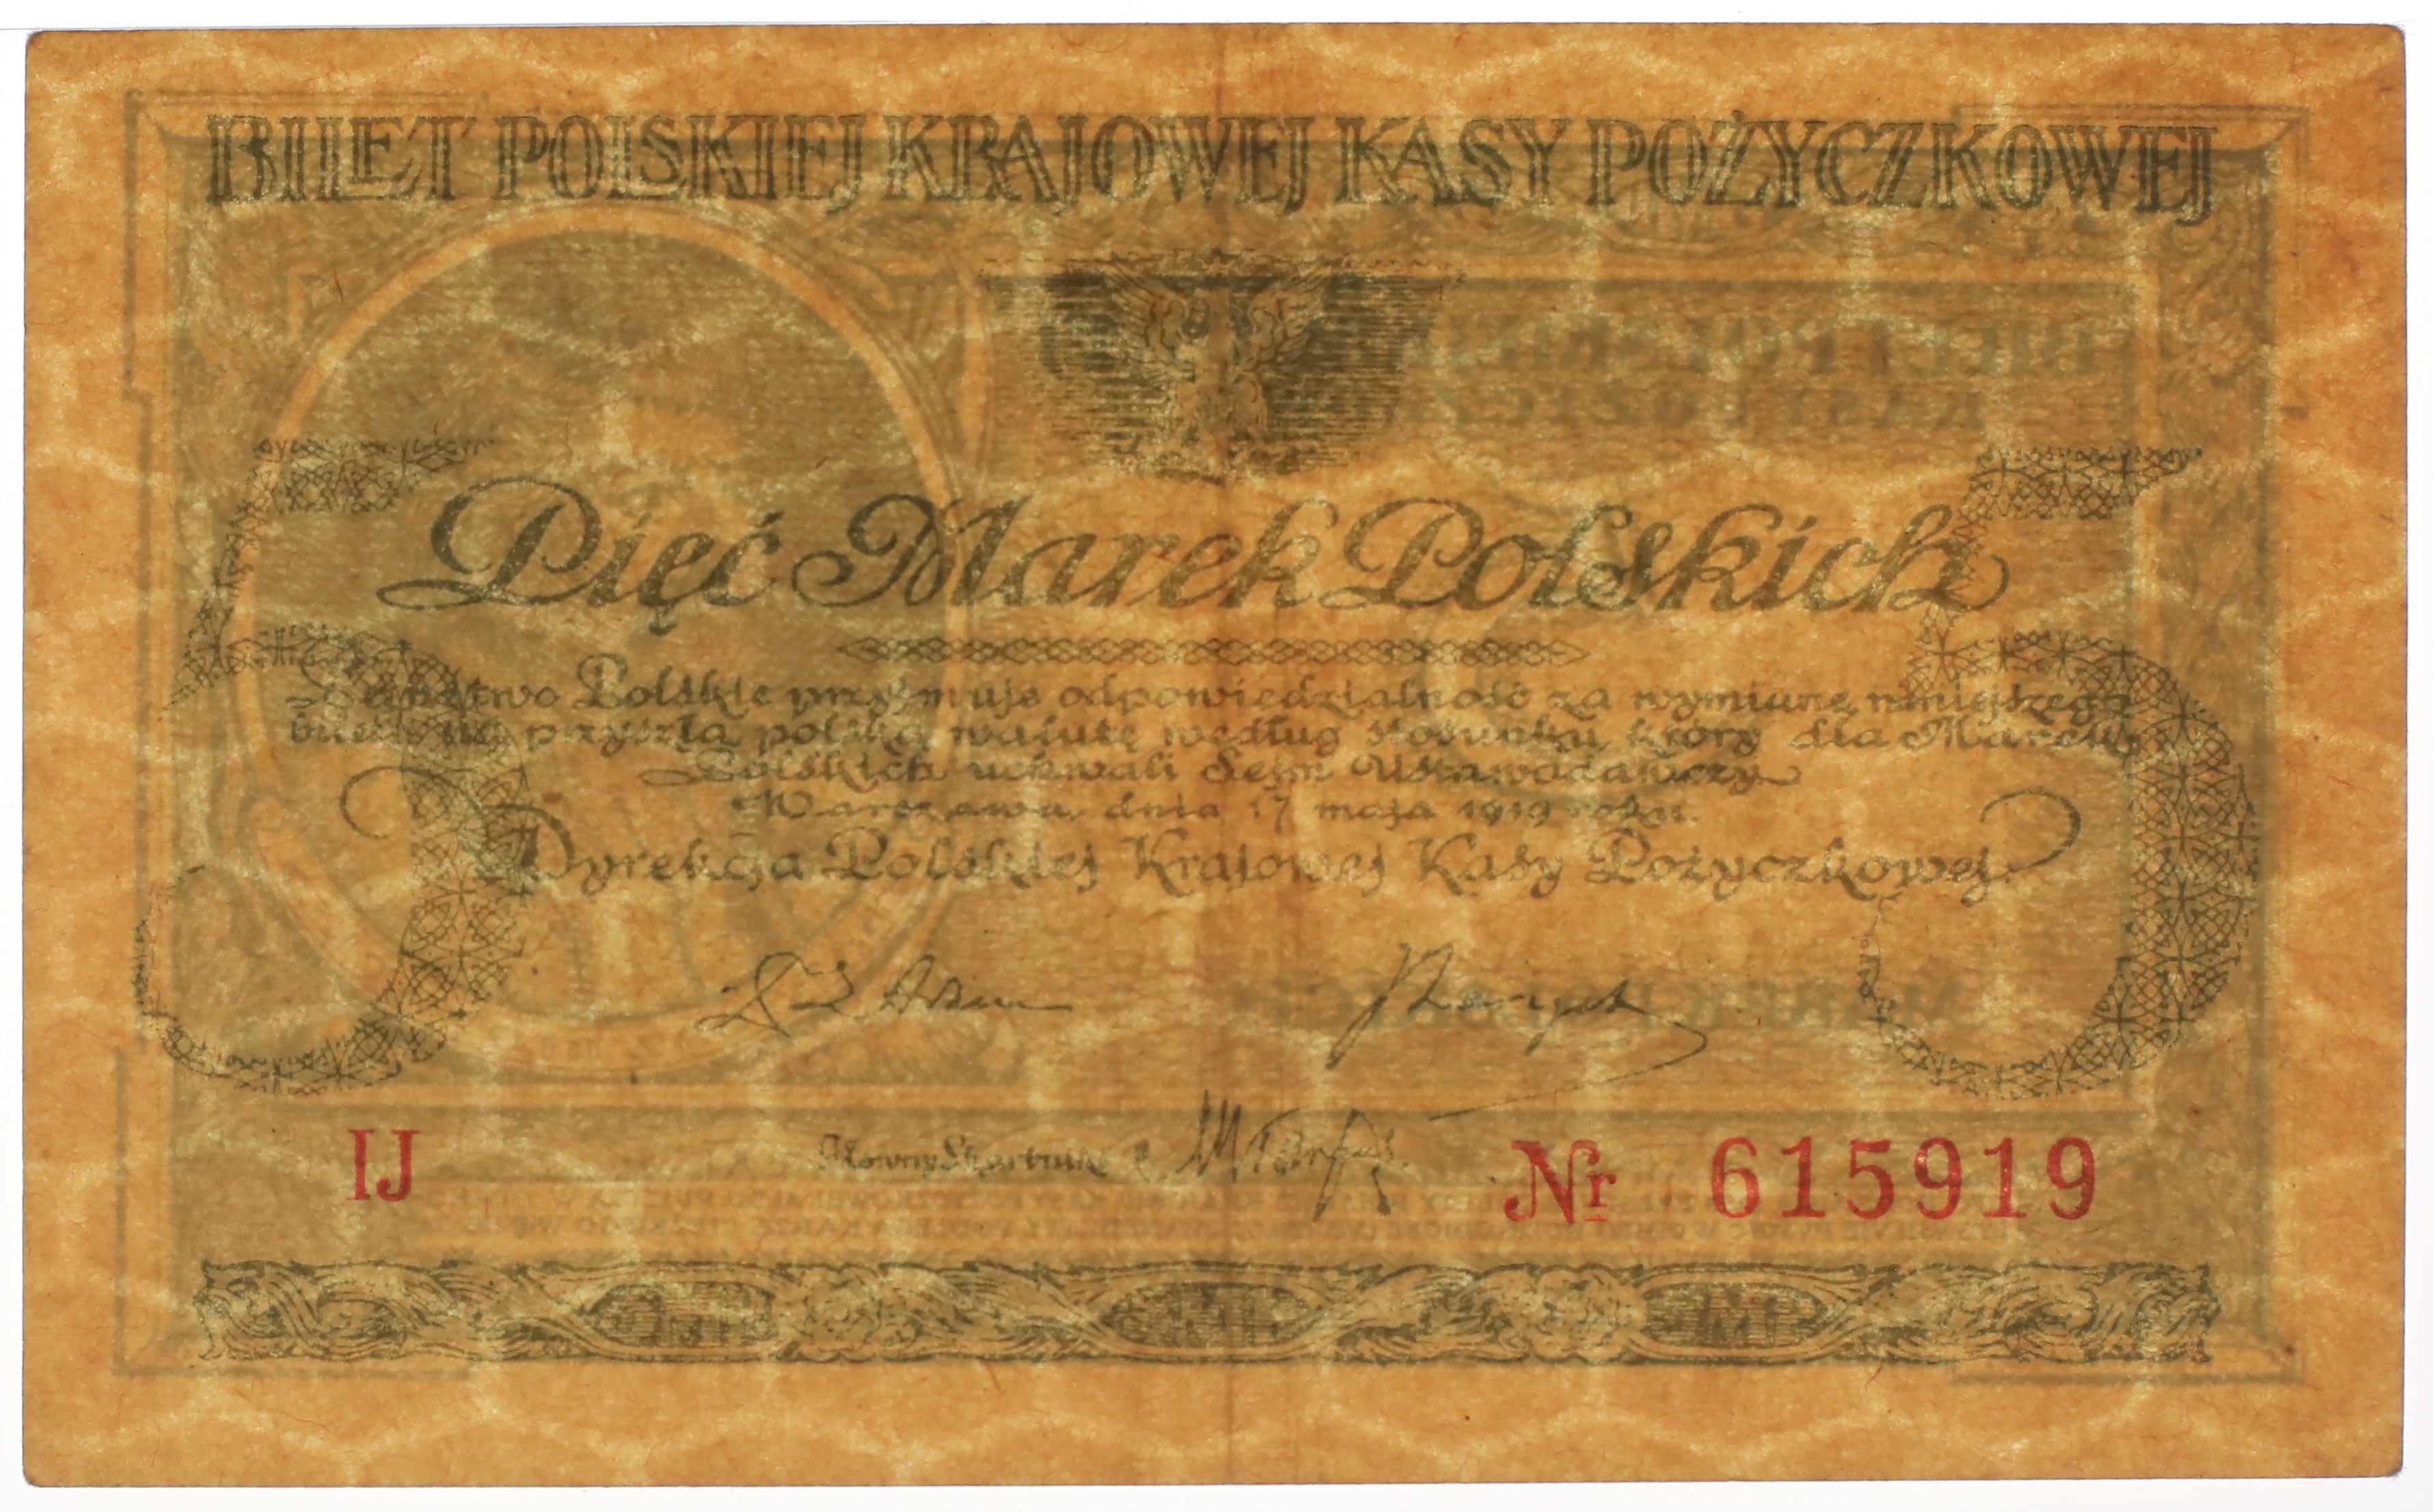 BILET POLSKIEJ KRAJOWEJ KASY POŻYCZKOWEJ
Pięć Marek Polskich
Państwo Polskie przyjmuje odpowiedzialność za wymianę niniejszego
biletu na przyszłą polską walutę według stosunku, który dla Marek
Polskich uchwali Sejm Ustawodawczy
Warszawa, dnia 17 maja 1919 roku.
Dyrekcja Polskiej Krajowej Kasy Pożyczkowej
5 5
IJ
Główny Skarbnik
Nr 615919